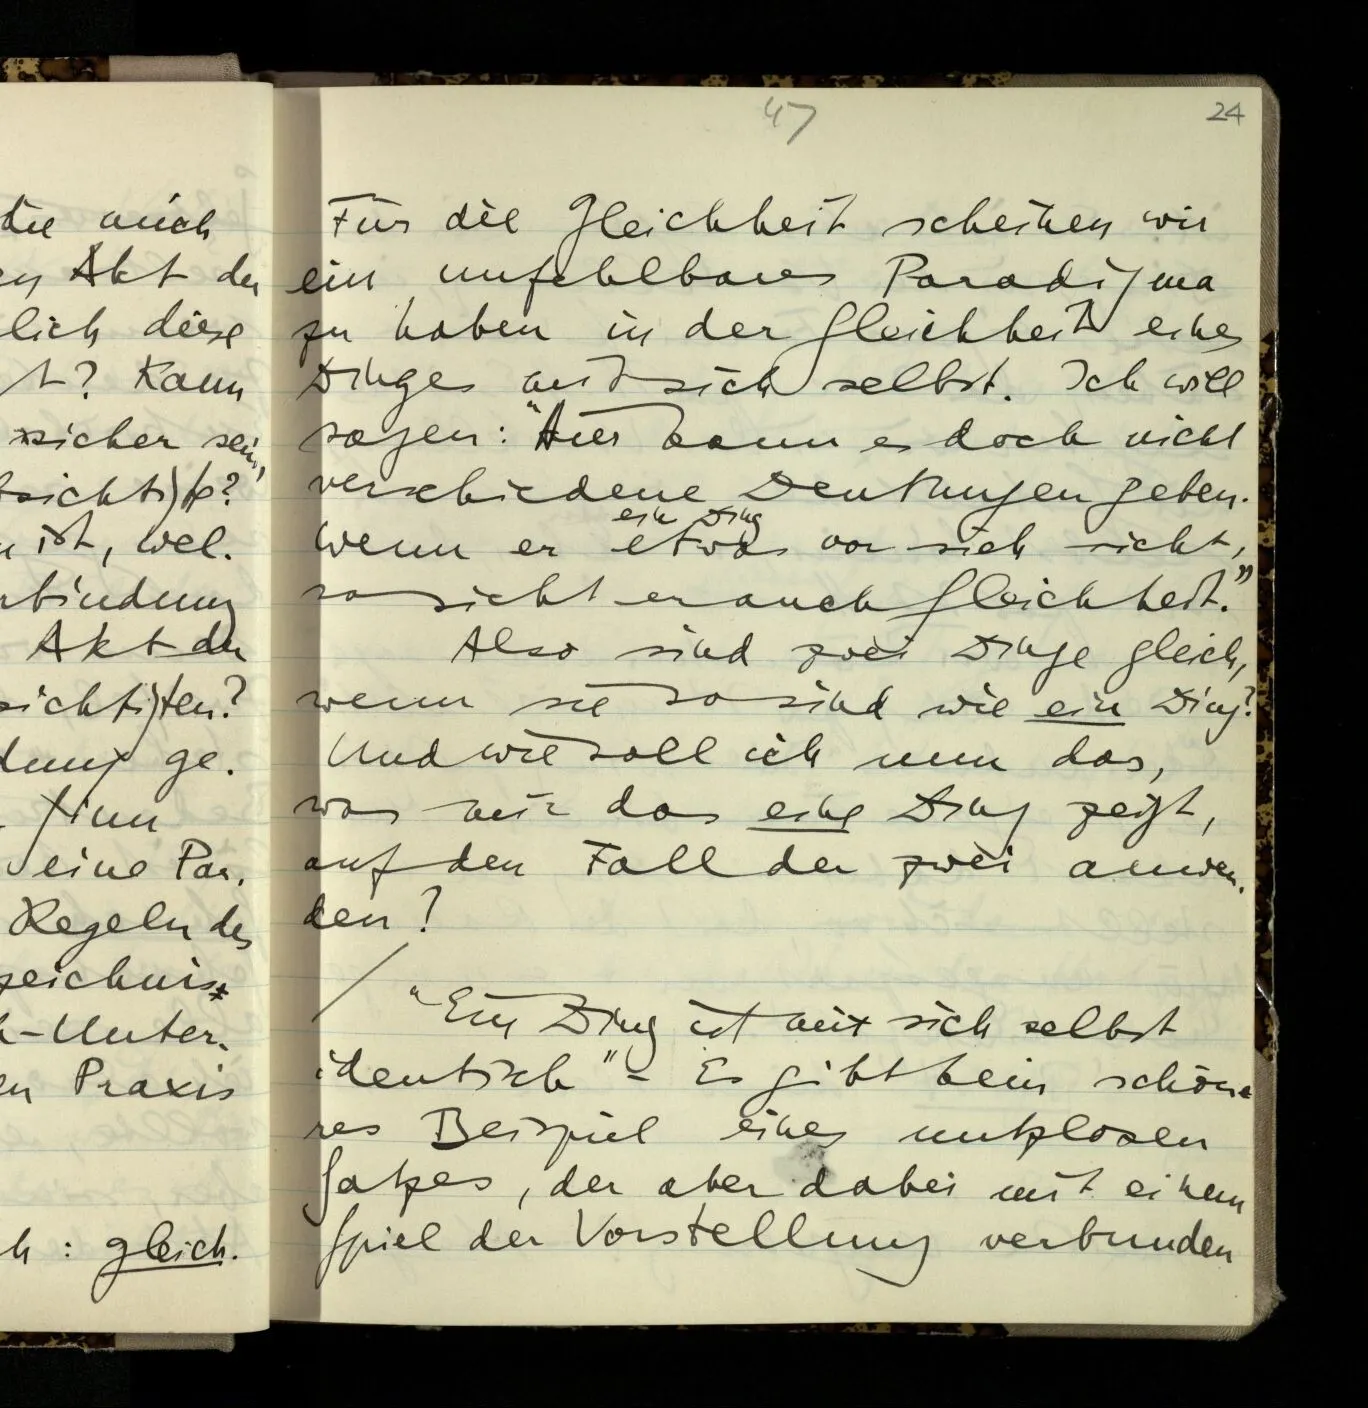 47
24
die mich
en Akt der
lich diese
t? Kann
sicher sein,
bsichtigte?
n ist, wel-
rbindung
Akt der
sichtigten?
dung ge-
Sinn
eine Par-
Regeln des
zeichnis
h-Unter-
en Praxis
h : gleich.
Für die Gleichheit scheinen wir
ein unfehlbares Paradigma
zu haben in der Gleichheit eines
Dinges mit sich selbst. Ich will
sagen: "Hier kann es doch nicht
verschiedene Deutungen geben.
ein Ding
Wenn er etwas vor sich sieht,
so sieht er auch Gleichheit."
Also sind zwei Dinge gleich,
wenn sie so sind wie ein Ding?
Und wie soll ich nun das,
was mir das eine Ding zeigt,
auf den Fall der zwei anwen-
den?
/
"Ein Ding ist mit sich selbst
identisch" – Es gibt kein schöne-
res Beispiel eines nutzlosen
Satzes, der aber dabei mit einem
Spiel der Vorstellung verbunden